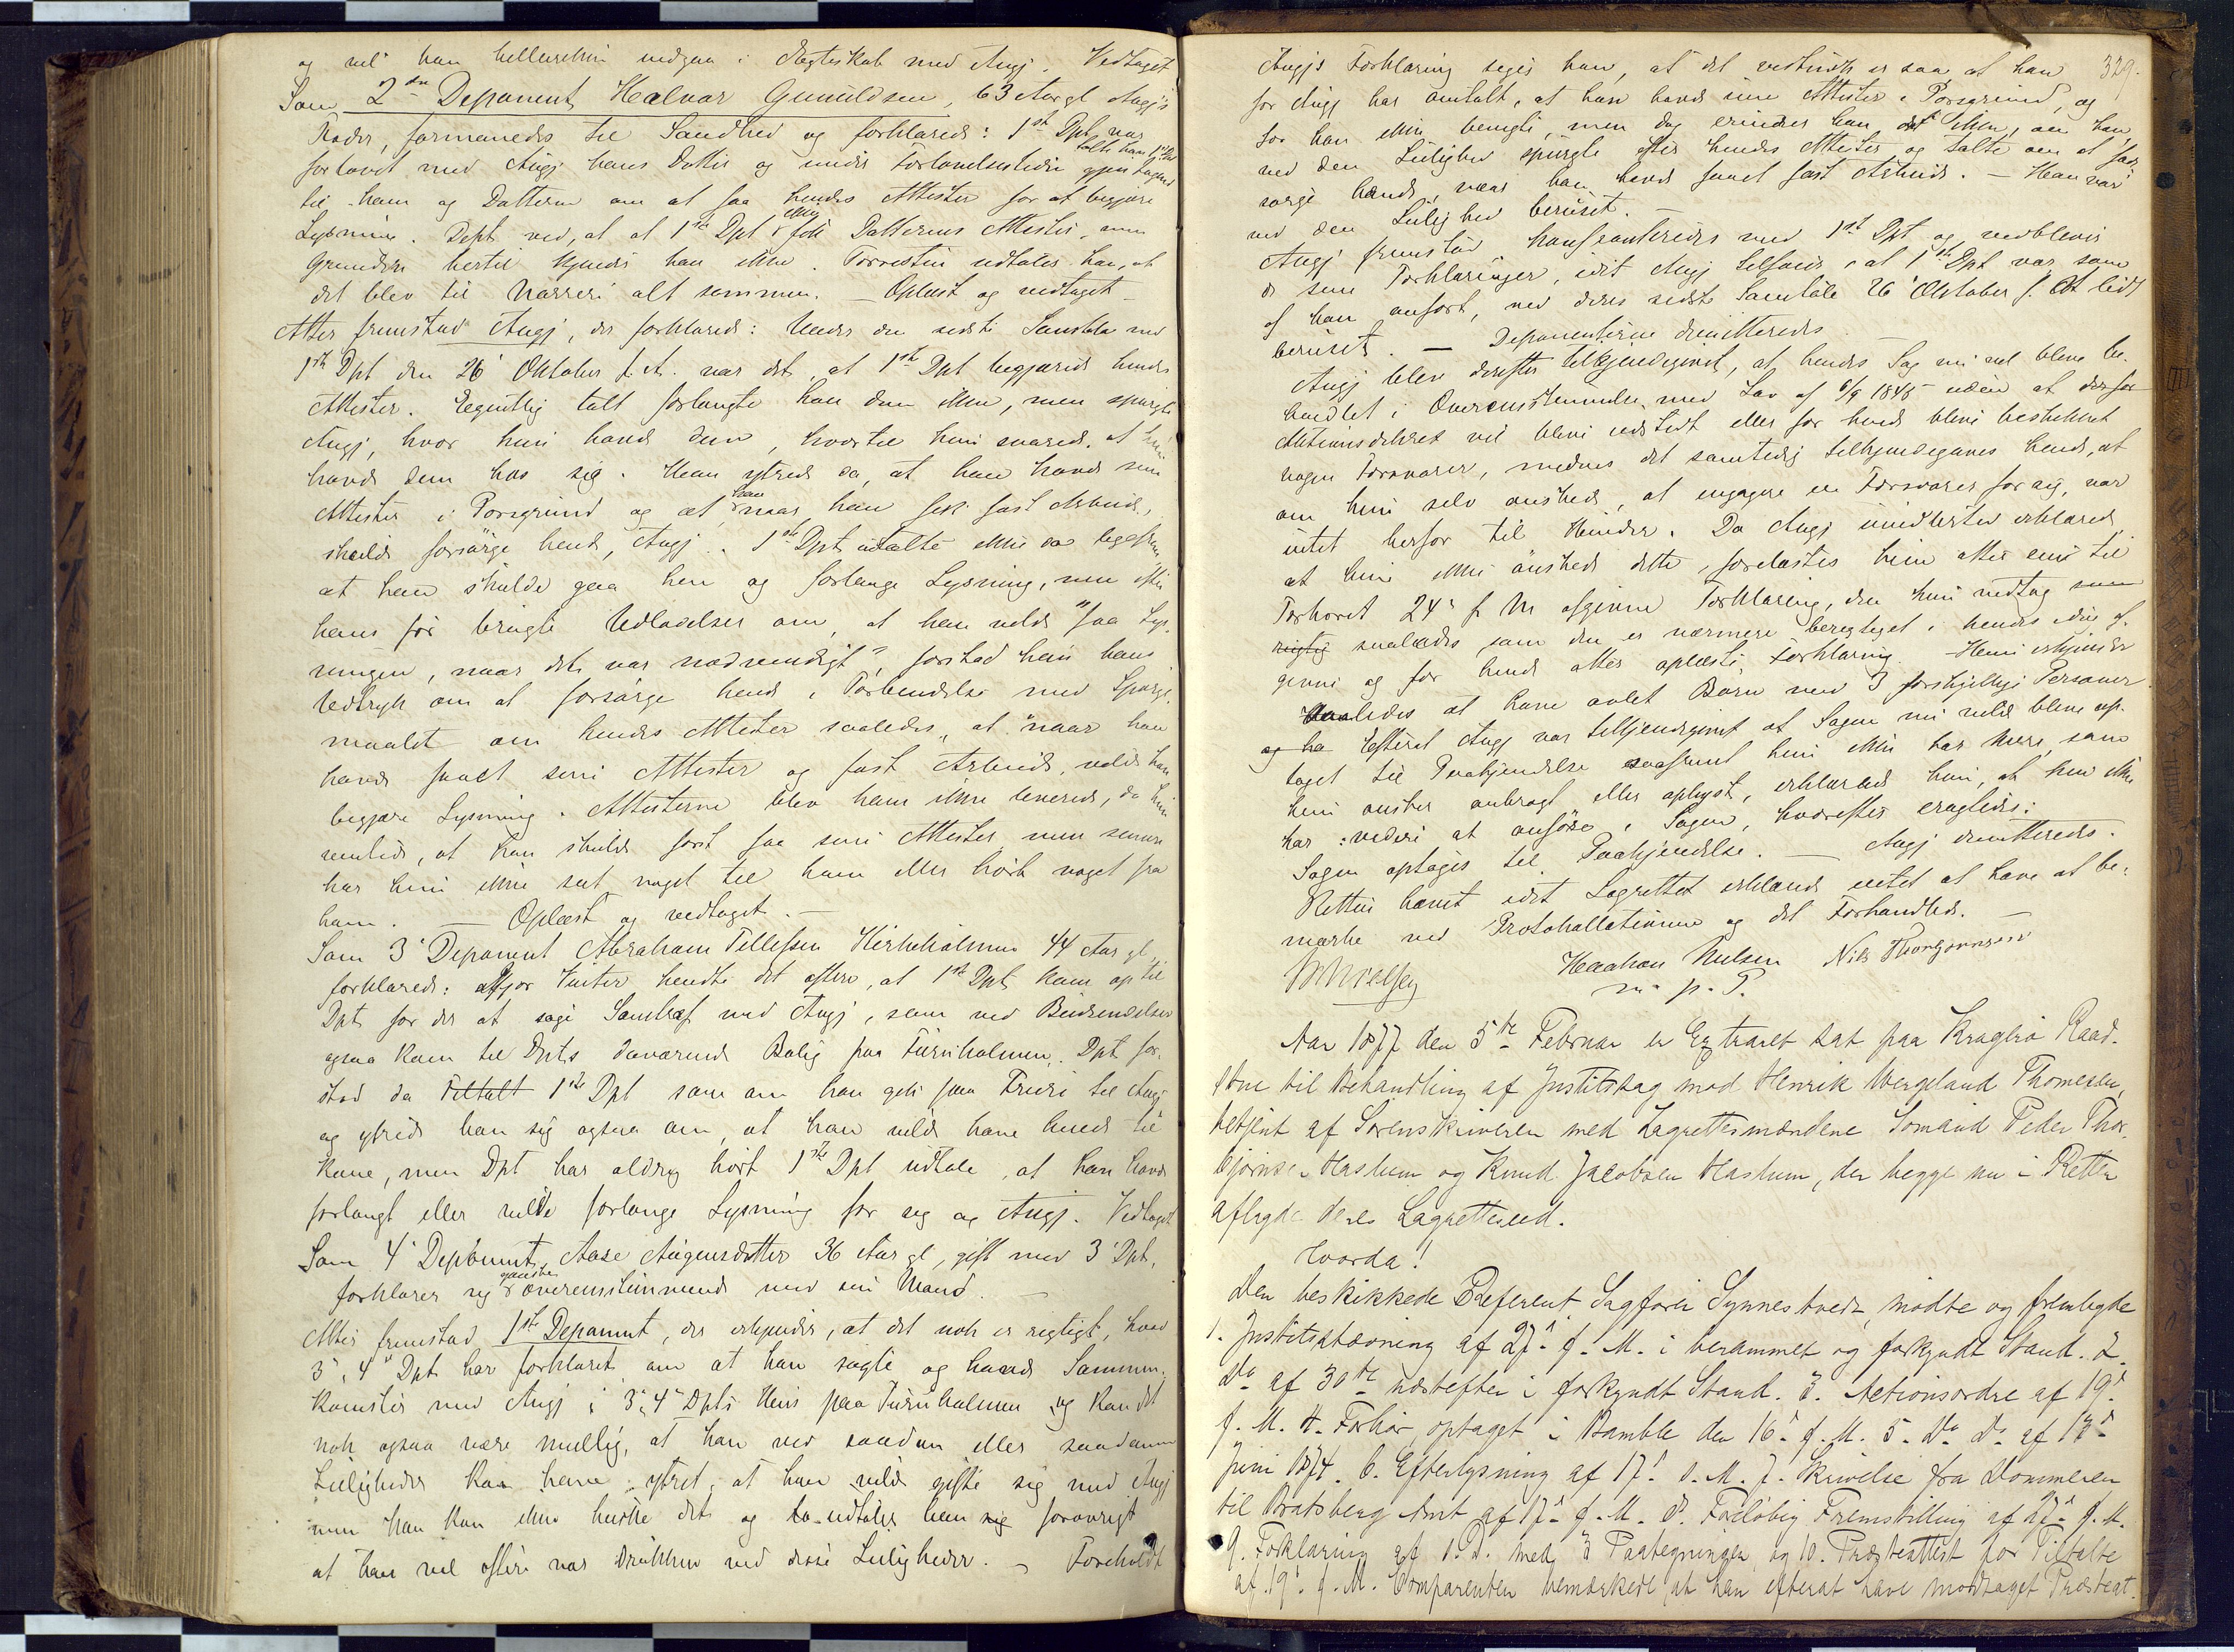 og vil han hellerikke indgaa i Ægteskab med Angj. Vedtaget
Som 2den Deponent Halvor Gunuldsen, 63 Aar gl. Angj's
Fader, formanedes til Sandhed og forklarede: 1ste Dpt var
forlovet med Angj hans Datter og under Forlovelsestiden talte han 1ste Dpt gjentagende
til ham og Datteren om at faa hendes Attester for at begjære
Lysning. Dept ved, at at 1ste Dpt ikke fik Datterens Attester, men
Grunden hertil kjender han ikke. Forresten udtales han, at
det blev til Narreri alt sammen. — Oplæst og vedtaget —
Atter fremstod Angj, der forklarede: Under den sidste Samtale med
1ste Dpt den 26' Oktober f. A. var det, at 1ste Dpt begjærede hendes
Attester. Egentlig talt forlangte han dem ikke, men spurgte
Angj, hvor hun havde dem, hvortil hun svarede, at hun
havde dem hos sig. Han ytrede da, at han havde sine
Attester i Porsgrund og at han naar han fik fast Arbeide,
skulde forsørge hende, Angj. 1ste Dpt udtalte ikke da ligefrem
at han skulde gaa hen og forlange Lysning, men efter
hans før brugte Udladelser om, at han vilde "faa Lys-
ningen, naar det var nødvendigt", forstod hun hans
Udtryk om at forsørge hende i Forbindelse med Spørgs-
maalet om hendes Attester saaledes, at "naar han
havde faaet sine Attester og fast Arbeide, vilde han
begjære Lysning. Attesterne blev ham ikke leverede, da hun
mente, at han skulde først faa sine Attester, men senere
har hun ikke seet noget til ham eller hørt noget fra
ham. — Oplæst og vedtaget. —
Som 3' Deponent Abraham Tellefsen Kirkeholmen 44 Aar gl.
forklarede: ifjor Vinter hendte det oftere, at 1ste Dpt kom op til
Dpt for der at søge Samtræf med Angj, som ved Budsendelser
ogsaa kom til Dpts daværende Bolig paa Furuholmen. Dpt for-
stod da Tiltalt 1ste Dpt som om han gik paa Frieri til Angj
og ytrede han sig ogsaa om, at han vilde have hende til
Kone, men Dpt har aldrig hørt 1ste Dpt udtale, at han havde
forlangt eller vilde forlange Lysning for sig og Angj. Vedtaget
Som 4' Deponent Aase Aagensdatter 36 Aar gl, gift med 3' Dpt,
forklarer sig ganske overensstemmende med sin Mand. —
Atter fremstod 1ste Deponent, der erkjender, at det nok er rigtigt, hvad
3', 4' Dpt har forklaret om at han søgte og havde Sammen-
komster med Angj i 3', 4' Dpts Huus paa Furuholmen og kan det
nok ogsaa være muligt, at han ved saadan eller saadanne
Leiligheder kan have ytret, at han vilde gifte sig med Angj
men han kan ikke huske det og udtaler han sig forøvrigt
at han vel oftere var drukken ved disse Leiligheder. — Foreholdt
329.
Angjs Forklaring siges han, at det vistnok er saa at han
for Angj har omtalt, at han havde sine Attester i Porsgrund, og
tør han ikke benegte, men dog erindrer han det ikke, om han
ved den Leilighed spurgte efter hendes Attester og talte om at for-
sørge hende, naar han havde faaet fast Arbeide. — Han var
ved den Leilighed beruset. —
Angj fremstod konfronteredes med 1ste Dpt og vedblever
de sine Forklaringer, idet Angj tilføier, at 1ste Dpt var, som
af ham anført, ved deres sidste Samtale 26' Oktober f. A. lidt
beruset. — Deponenterne dimitteredes —
Angj blev derefter tilkjendegivet, at hendes Sag nu vil blive be-
handlet i Overensstemmelse med Lov af 6/9 1845 uden at derfor
Aktionsdekret vil blive udstedt eller for hende blive beskikket
nogen Forsvarer, medens det samtidig tilkjendegaves hende, at
om hun selv ønskede, at engagere en Forsvarer for sig, var
intet herfor til Hinder. Da Angj imidlertid erklærede,
at hun ikke ønskede dette, forelæstes hun atter sin til
Forhøret 24' f M afgivne Forklaring, den hun vedtog som
rigtig saaledes som den er nærmere beregtiget i hendes idag af-
givne og for hende atter oplæste Forklaring. Hun erkjender
saaledes at have avlet Børn med 3 forskjellige Personer
og ha Efterat Angj var tilkjendegivet at Sagen nu vilde blive op-
taget til Paakjendelse saafremt hun ikke har mere, som
hun ønsker anbragt eller oplyst, erklærede hun, at hun ikke
har videre at anføre i Sagen, hvorefter eragtedes:
Sagen optages til Paakjendelse. — Angj dimitteredes.
Retten hævet idet Lagrettet erklærede intet at have at be-
mærke ved Protokollationen og det Forhandlede. —
Haakon Nielsen Nils Thorbjørnsen
m. p. P.
Aar 1877 den 5te Februar er Extraret sat paa Kragerø Raad-
stue til Behandling af Justitssag mod Henrik Wergeland Thomesen,
betjent af Sorenskriveren med Lagrettesmændene Sømand Peder Thor-
bjørnsen Haslum og Knud Jacobsen Haslum, der begge nu i Retten
aflagde deres Lagretteseed.
Hvorda!
Den beskikkede Referent Sagfører Synnestvedt mødte og fremlagde
1. Justitsstævning af 27' f. M. i berammet og forkyndt Stand. 2.
Do af 30te næstefter i forkyndt Stand. 3. Actionsordre af 19'
f. M. 4. Forhør optaget i Bamble den 16' f. M. 5. Do Do af 18'
Juni 1874. 6. Efterlysning af 17' s. M. 7. Skrivelse fra Dommeren
til Bratsberg Amt af 17' f. M. 8. Foreløbig Fremstilling af 27' f. M.
9. Forklaring af s. D. med 3 Paategninger og 10. Præsteattest for Tiltalte
af 19' f. M. Comparenten bemærkede, at han efterat have modtaget Præsteat-